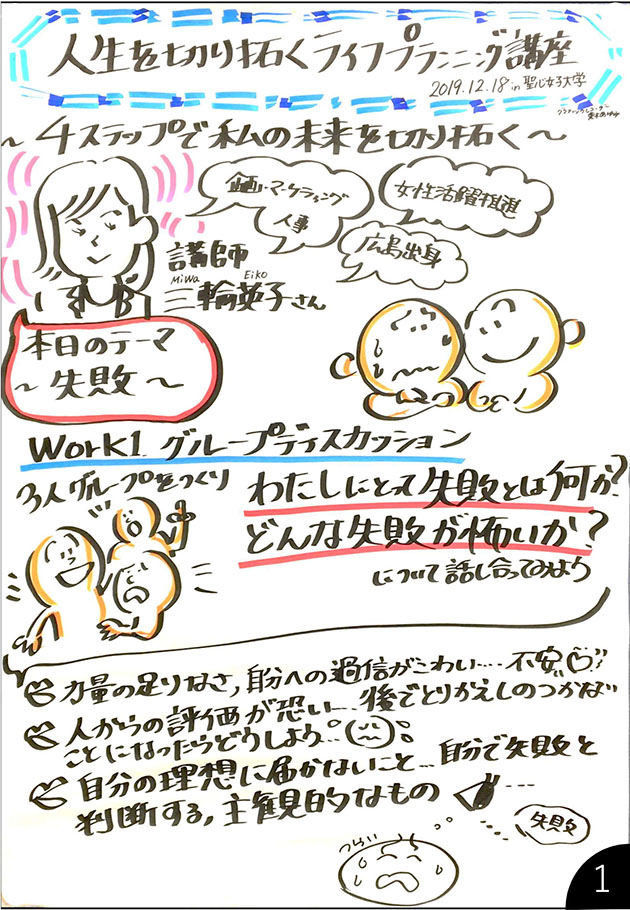 人生を切り拓くライフプランニング講座
2019.12.18 in 聖心女子大学
グラフィックレコーダー
~4ステップで私の未来を切り拓く~
企画・マーケティング
人事
女性活躍推進
広島出身
講師
Miwa Eiko
三輪英子さん
本日のテーマ
~失敗~
Work1 グループディスカッション
3人グループをつくり
わたしにとって失敗とは何か?
どんな失敗が怖いか?
について話し合ってみよう
力量の足りなさ,自分への過信がこわい....不安
人からの評価が恐い....後でとりかえしのつかない
ことになったらどうしよう...
自分の理想に届かないこと...自分で失敗と
判断する,主観的なもの
失敗
つらい
1